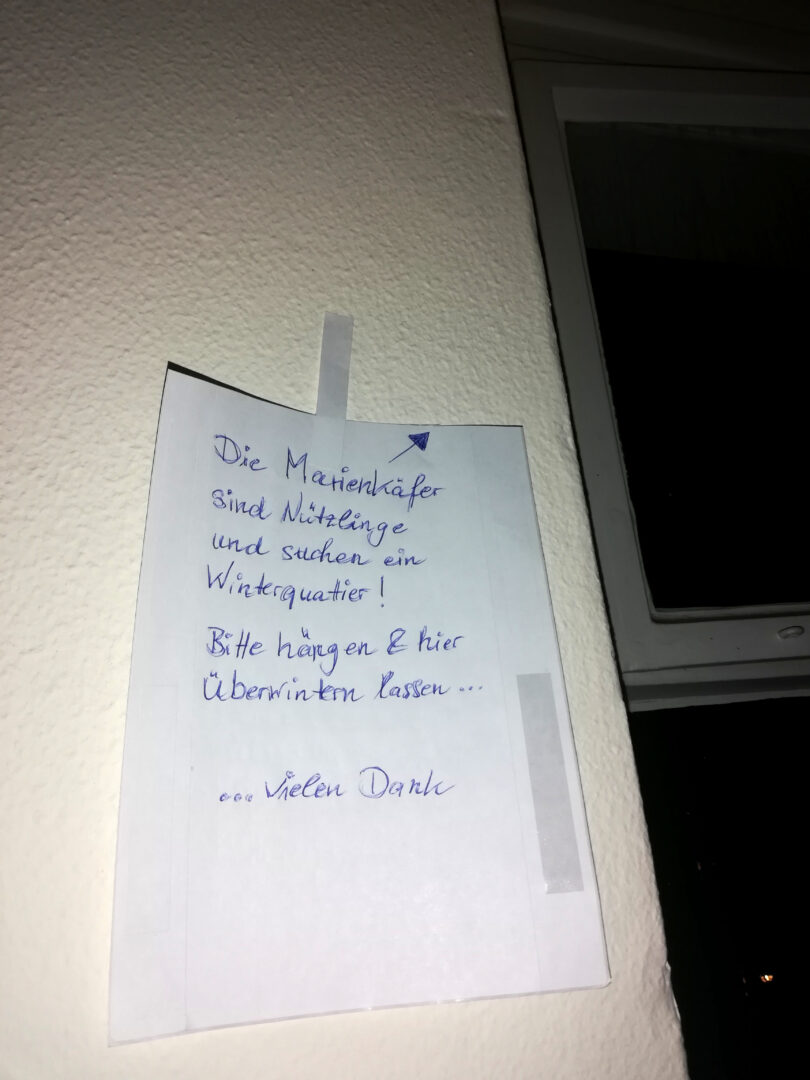 Die Marienkäfer
sind Nützlinge
und suchen ein
Winterquattier!
Bitte hängen & hier
Überwintern lassen...
... vielen Dank